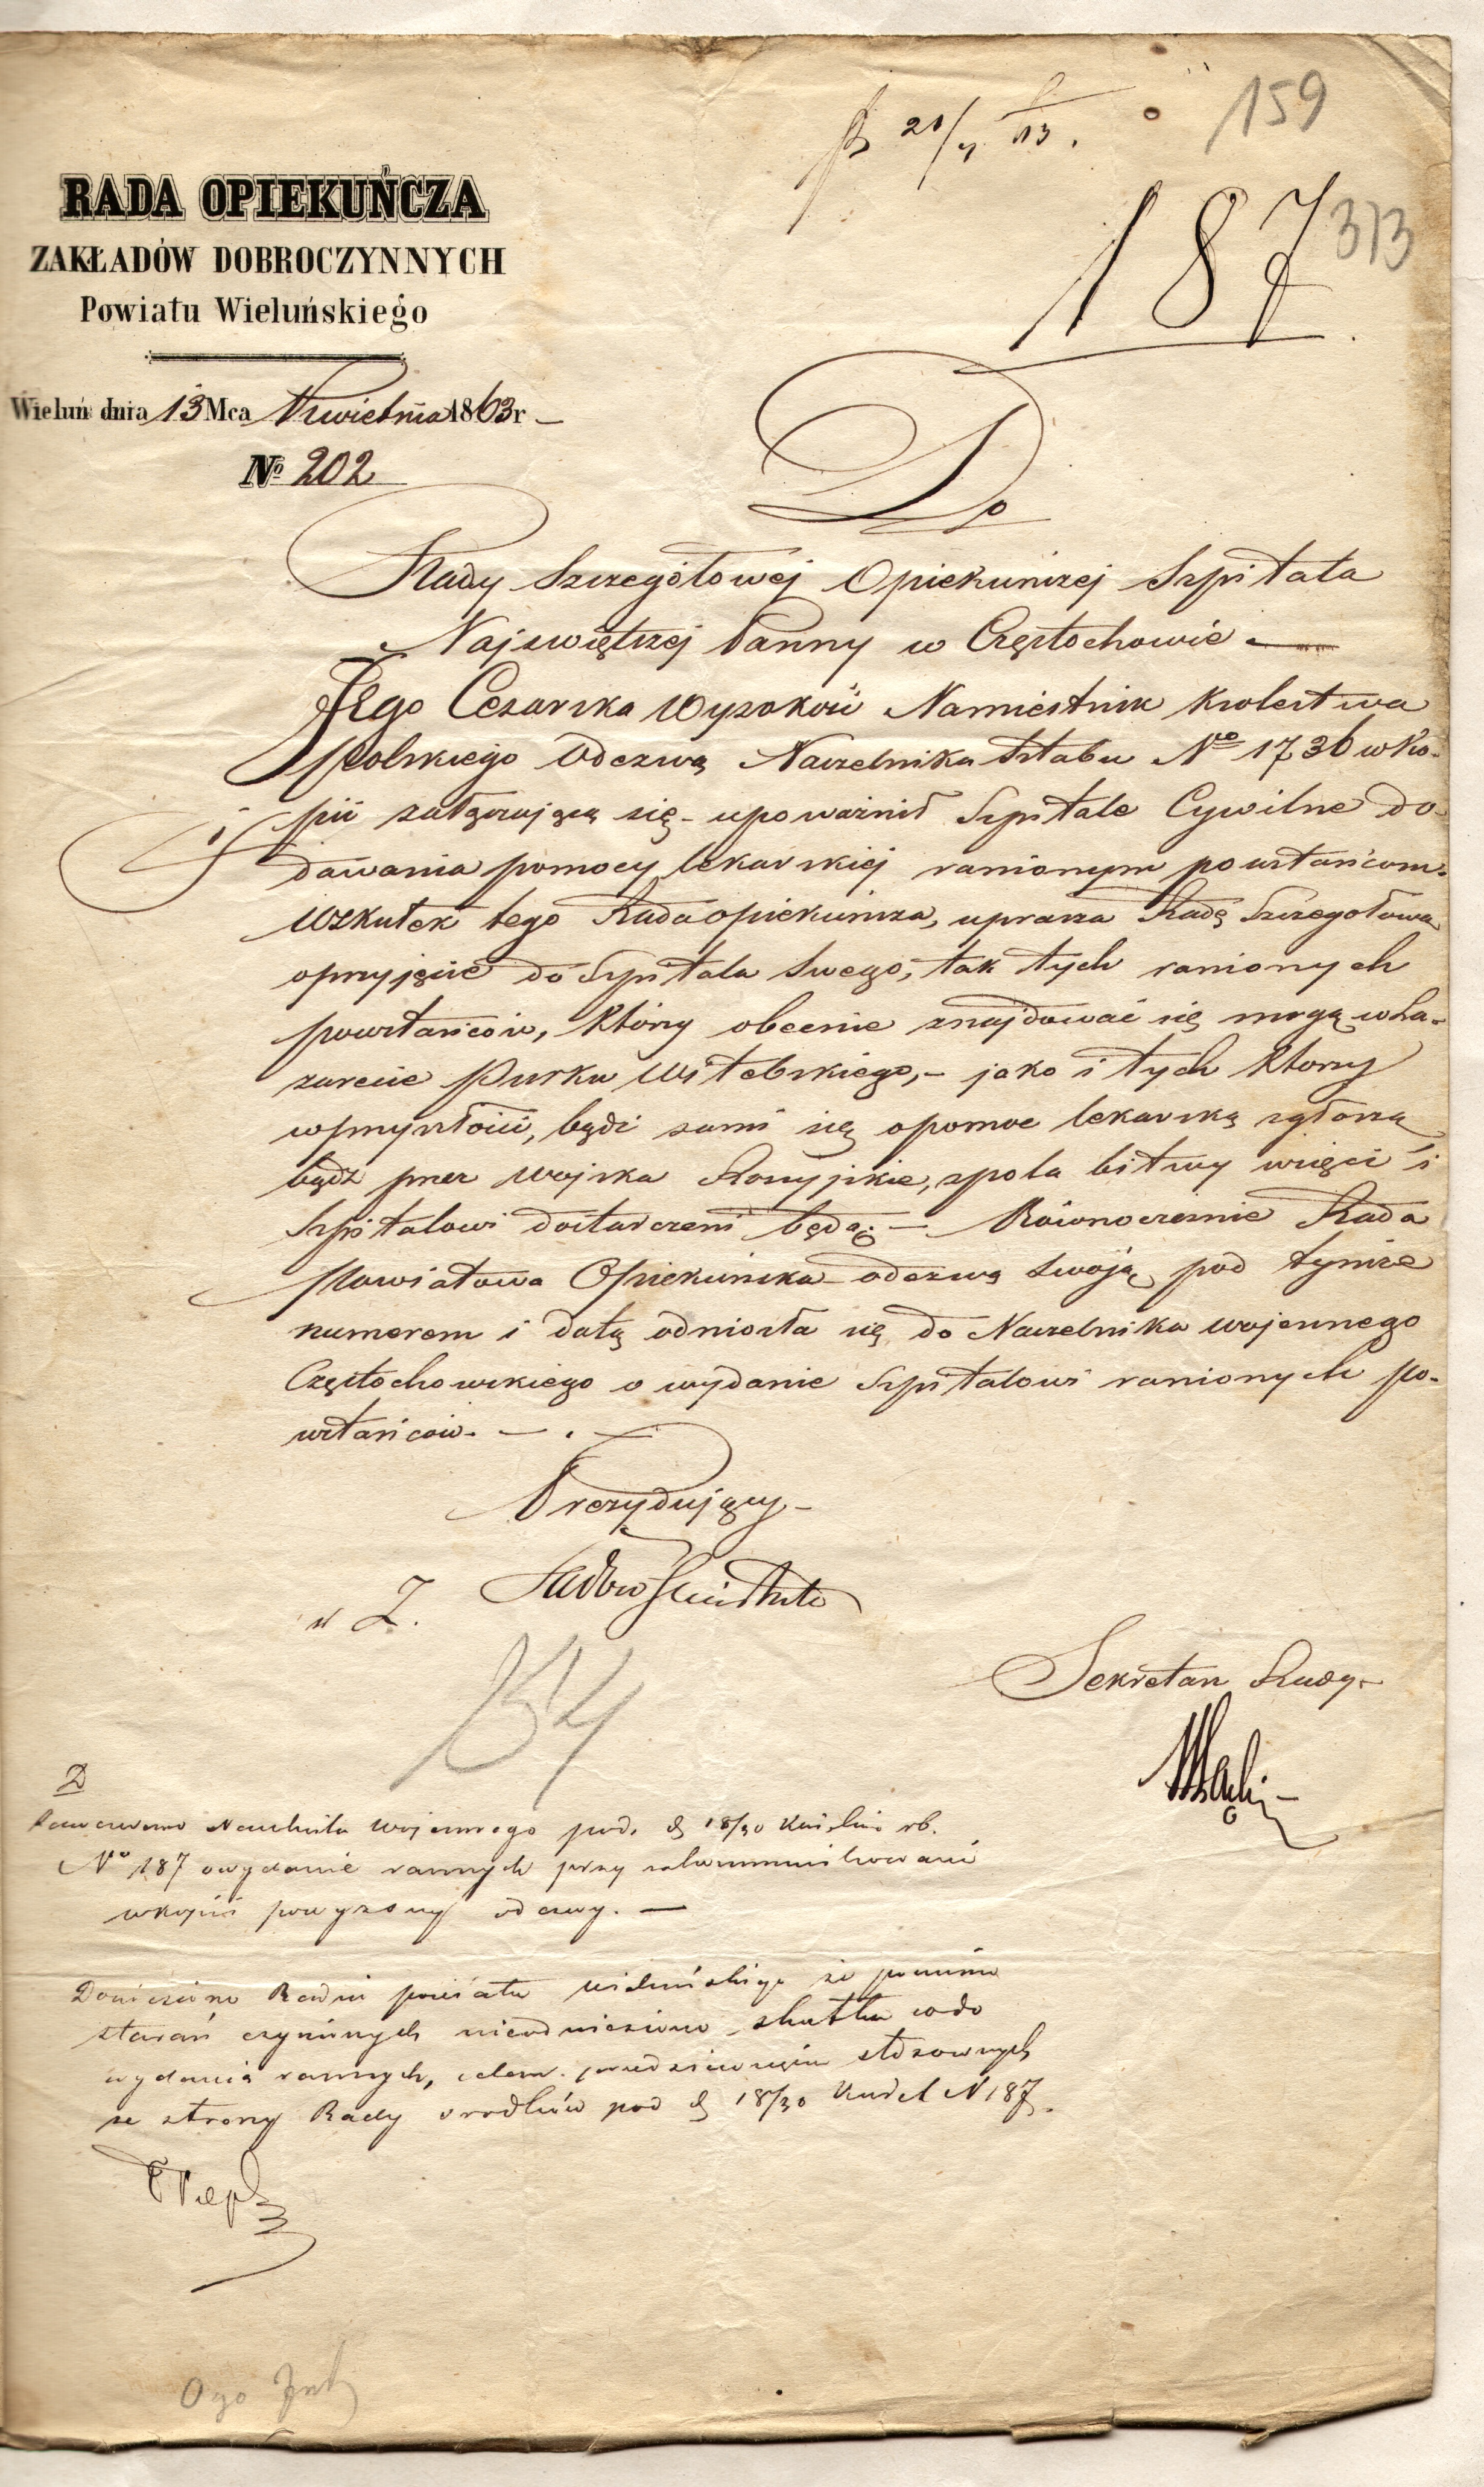 159
187
313
RADA OPIEKUŃCZA
ZAKŁADÓW DOBROCZYNNYCH
Powiatu Wieluńskiego
Wieluń dnia 13 Mca Kwietnia 1863 r
No 202
Do
Rady Szczegółowej Opiekunczej Szpitala
Najswiętszej Panny w Częstochowie
Jego Cesarska Wysokość Namiestnik Krolestwa
Polskiego Odezwą Naczelnika Sztabu No 1736 w Ko-
pii załączającą się - upoważnił Szpitale Cywilne do
dawania pomocy lekarskiej ranionym powstańcom.
Wskutek tego Rada opiekuńcza, uprasza Radę Szczegołową
o przyjęcie do Szpitala Swego, tak tych ranionych
powstańców, którzy obecnie znajdować się mogą w La-
zarecie Pułku Witebskiego, - jako i tych ktorzy
w przyszłości, bądź sami się o pomoc lekarską zgłoszą
bądź przez wojska Rossyjskie, z pola bitwy wzięci i
Szpitalowi dostarczeni będą. - Równocześnie Rada
Powiatowa Opiekuńcza odezwą swoją pod tymże
numerem i datą odniosła się do Naczelnika wojennego
Częstochowskiego o wydanie Szpitalowi ranionych po-
wstańców. -
Prezydujący -
w Z.
Sekretarz Rady -
54
D
Naczelnika Wojennego pod d 18/30 Kwietnia rb.
No 187 o wydanie rannych przy zakommunikowaniu
w kopii powyzszej odezwy. -
Doniesiono Radzie powiatu wieluńskiego że pomimo
starań czynionych nie odniesiono skutku co do
wydania rannych, celem przedsięwzięcia stosownych
ze strony Rady srodków pod d 18/30 Kwiet N 187.